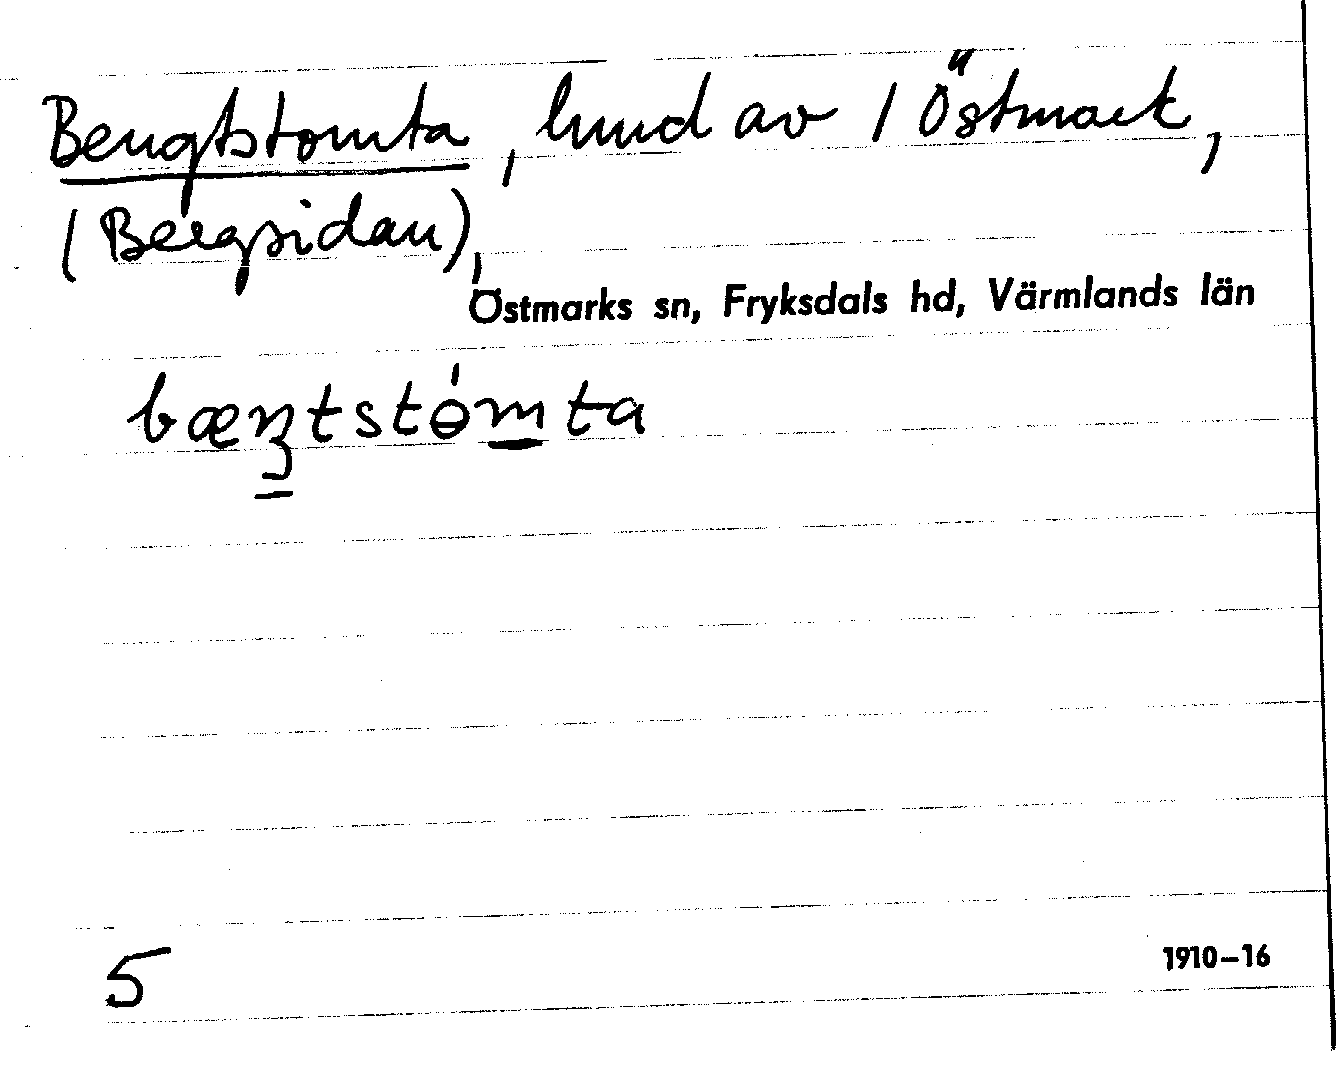 Bengtstomta, hmd av 1 Östmark,
(Bergsidan),
Östmarks sn, Fryksdals hd, Värmlands län
bæŋtstɵ́mta
5
1910–16